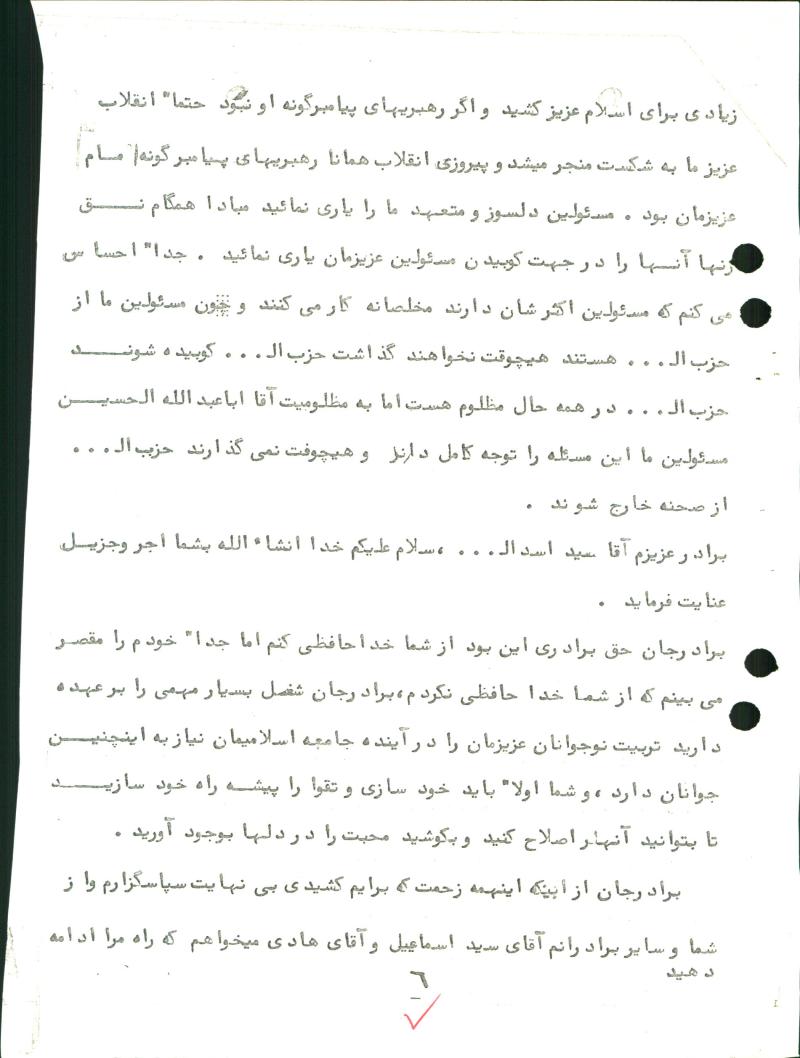 زیادی برای اسلام عزیز کشید و اگر رهبریهای پیامبرگونه او نبود حتما" انقلاب
عزیز ما به شکست منجر میشد و پیروزی انقلاب همانا رهبریهای پیامبرگونه امام
عزیزمان بود . مسئولین دلسوز و متعهد ما را یاری نمائید مبادا همگام نق
زنها آنها را در جهت کوبیدن مسئولین عزیزمان یاری نمائید . جدا" احساس
می کنم که مسئولین اکثرشان دارند مخلصانه کار می کنند و چون مسئولین ما از
حزب الـ... هستند هیچوقت نخواهند گذاشت حزب الـ... کوبیده شونـــد
حزب الـ... در همه حال مظلوم هست اما به مظلومیت آقا اباعبدالله الحسیـــن
مسئولین ما این مسئله را توجه کامل دارند و هیچوقت نمی گذارند حزب الـ...
از صحنه خارج شوند .
برادر عزیزم آقا سید اسدالـ... ،سلام علیکم خدا انشاء الله بشما اجر وجزیـل
عنایت فرماید .
برادرجان حق برادری این بود از شما خداحافظی کنم اما جدا" خودم را مقصر
می بینم که از شما خدا حافظی نکردم،برادرجان شغل بسیار مهمی را برعهده
دارید تربیت نوجوانان عزیزمان را در آینده جامعه اسلامیمان نیاز به اینچنیـــن
جوانان دارد ،و شما اولا" باید خود سازی و تقوا را پیشه راه خود سازیـــد
تا بتوانید آنهارا اصلاح کنید و بکوشید محبت را در دلها بوجود آورید .
برادرجان از اینکه اینهمه زحمت که برایم کشیدی بی نهایت سپاسگزارم و از
شما و سایر برادرانم آقای سید اسماعیل و آقای هادی میخواهم که راه مرا ادامه
دهید
٦